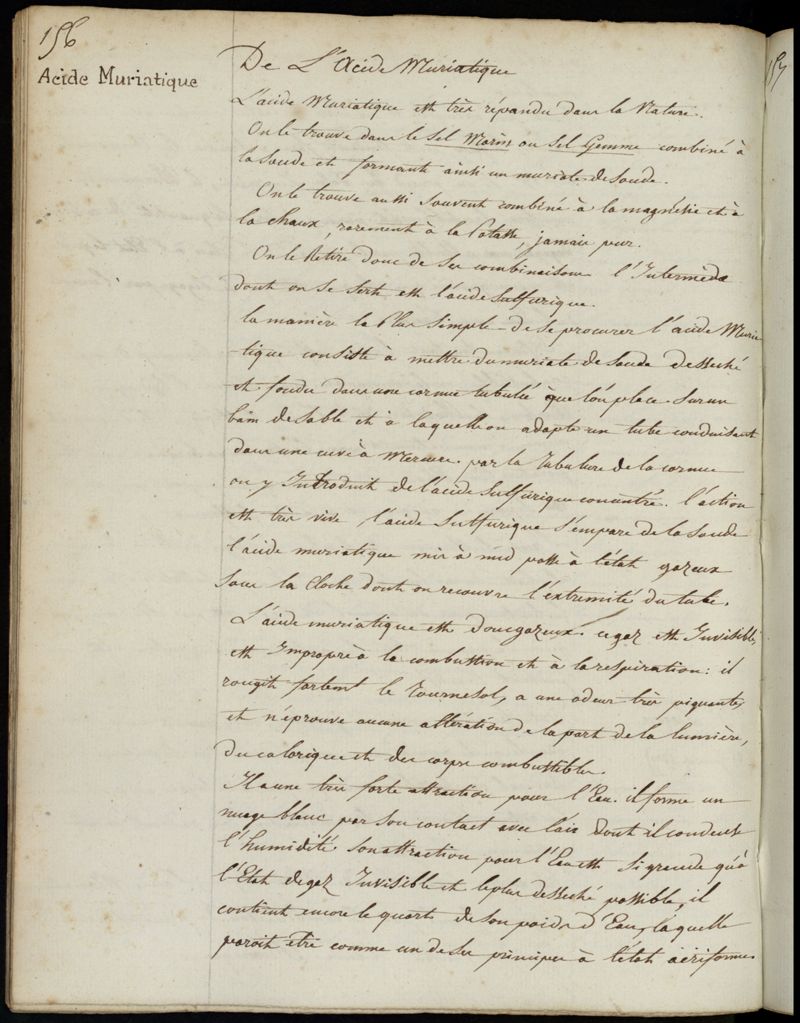 156
Acide Muriatique
De L'Acide Muriatique
L'acide Muriatique est très répandu dans la Nature.
On le trouve dans le Sel Marin ou Sel Gemme combiné à
la Soude et formant ainsi un muriate de Soude.
On le trouve aussi Souvent combiné à la magnésie et à
la chaux, rarement à la Potasse, jamais pur.
On le Retire donc de ses combinaisons l'Intermède
dont on se sert est l'acide Sulfurique.
la manière la Plus Simple de se procurer l'acide Muria
-tique consiste à mettre du muriate de Soude desséché
et fondu dans une cornue tubulée que l'on place Sur un
bain de Sable et à laquelle on adapte un tube conduisant
dans une cuve à Mercure. par la Tubulure de la cornue
on y Introduit de l'acide Sulfurique concentré. l'action
est très vive l'acide Sulfurique S'empare de la Soude
l'acide muriatique mis à nud passe à l'état gazeux
Sous la Cloche dont on recouvre l'extremité du tube.
L'acide muriatique est donc gazeux. ce gaz est Invisible,
est Impropre à la combustion et à la respiration: il
rougit fortemt le Tournesol, a une odeur très piquante,
et n'éprouve aucune altération de la part de la lumière,
du calorique et des corps combustibles.
Il a une très forte attraction pour l'Eau. il forme un
nuage blanc par Son contact avec l'air Dont il condense
l'humidité Son attraction pour l'Eau est Si grande qu'à
l'Etat de gaz Invisible et le plus desséché possible, il
contient encore le quart de Son poids d'Eau, laquelle
paroit être comme un de Ses principes à l'état aëriforme
157